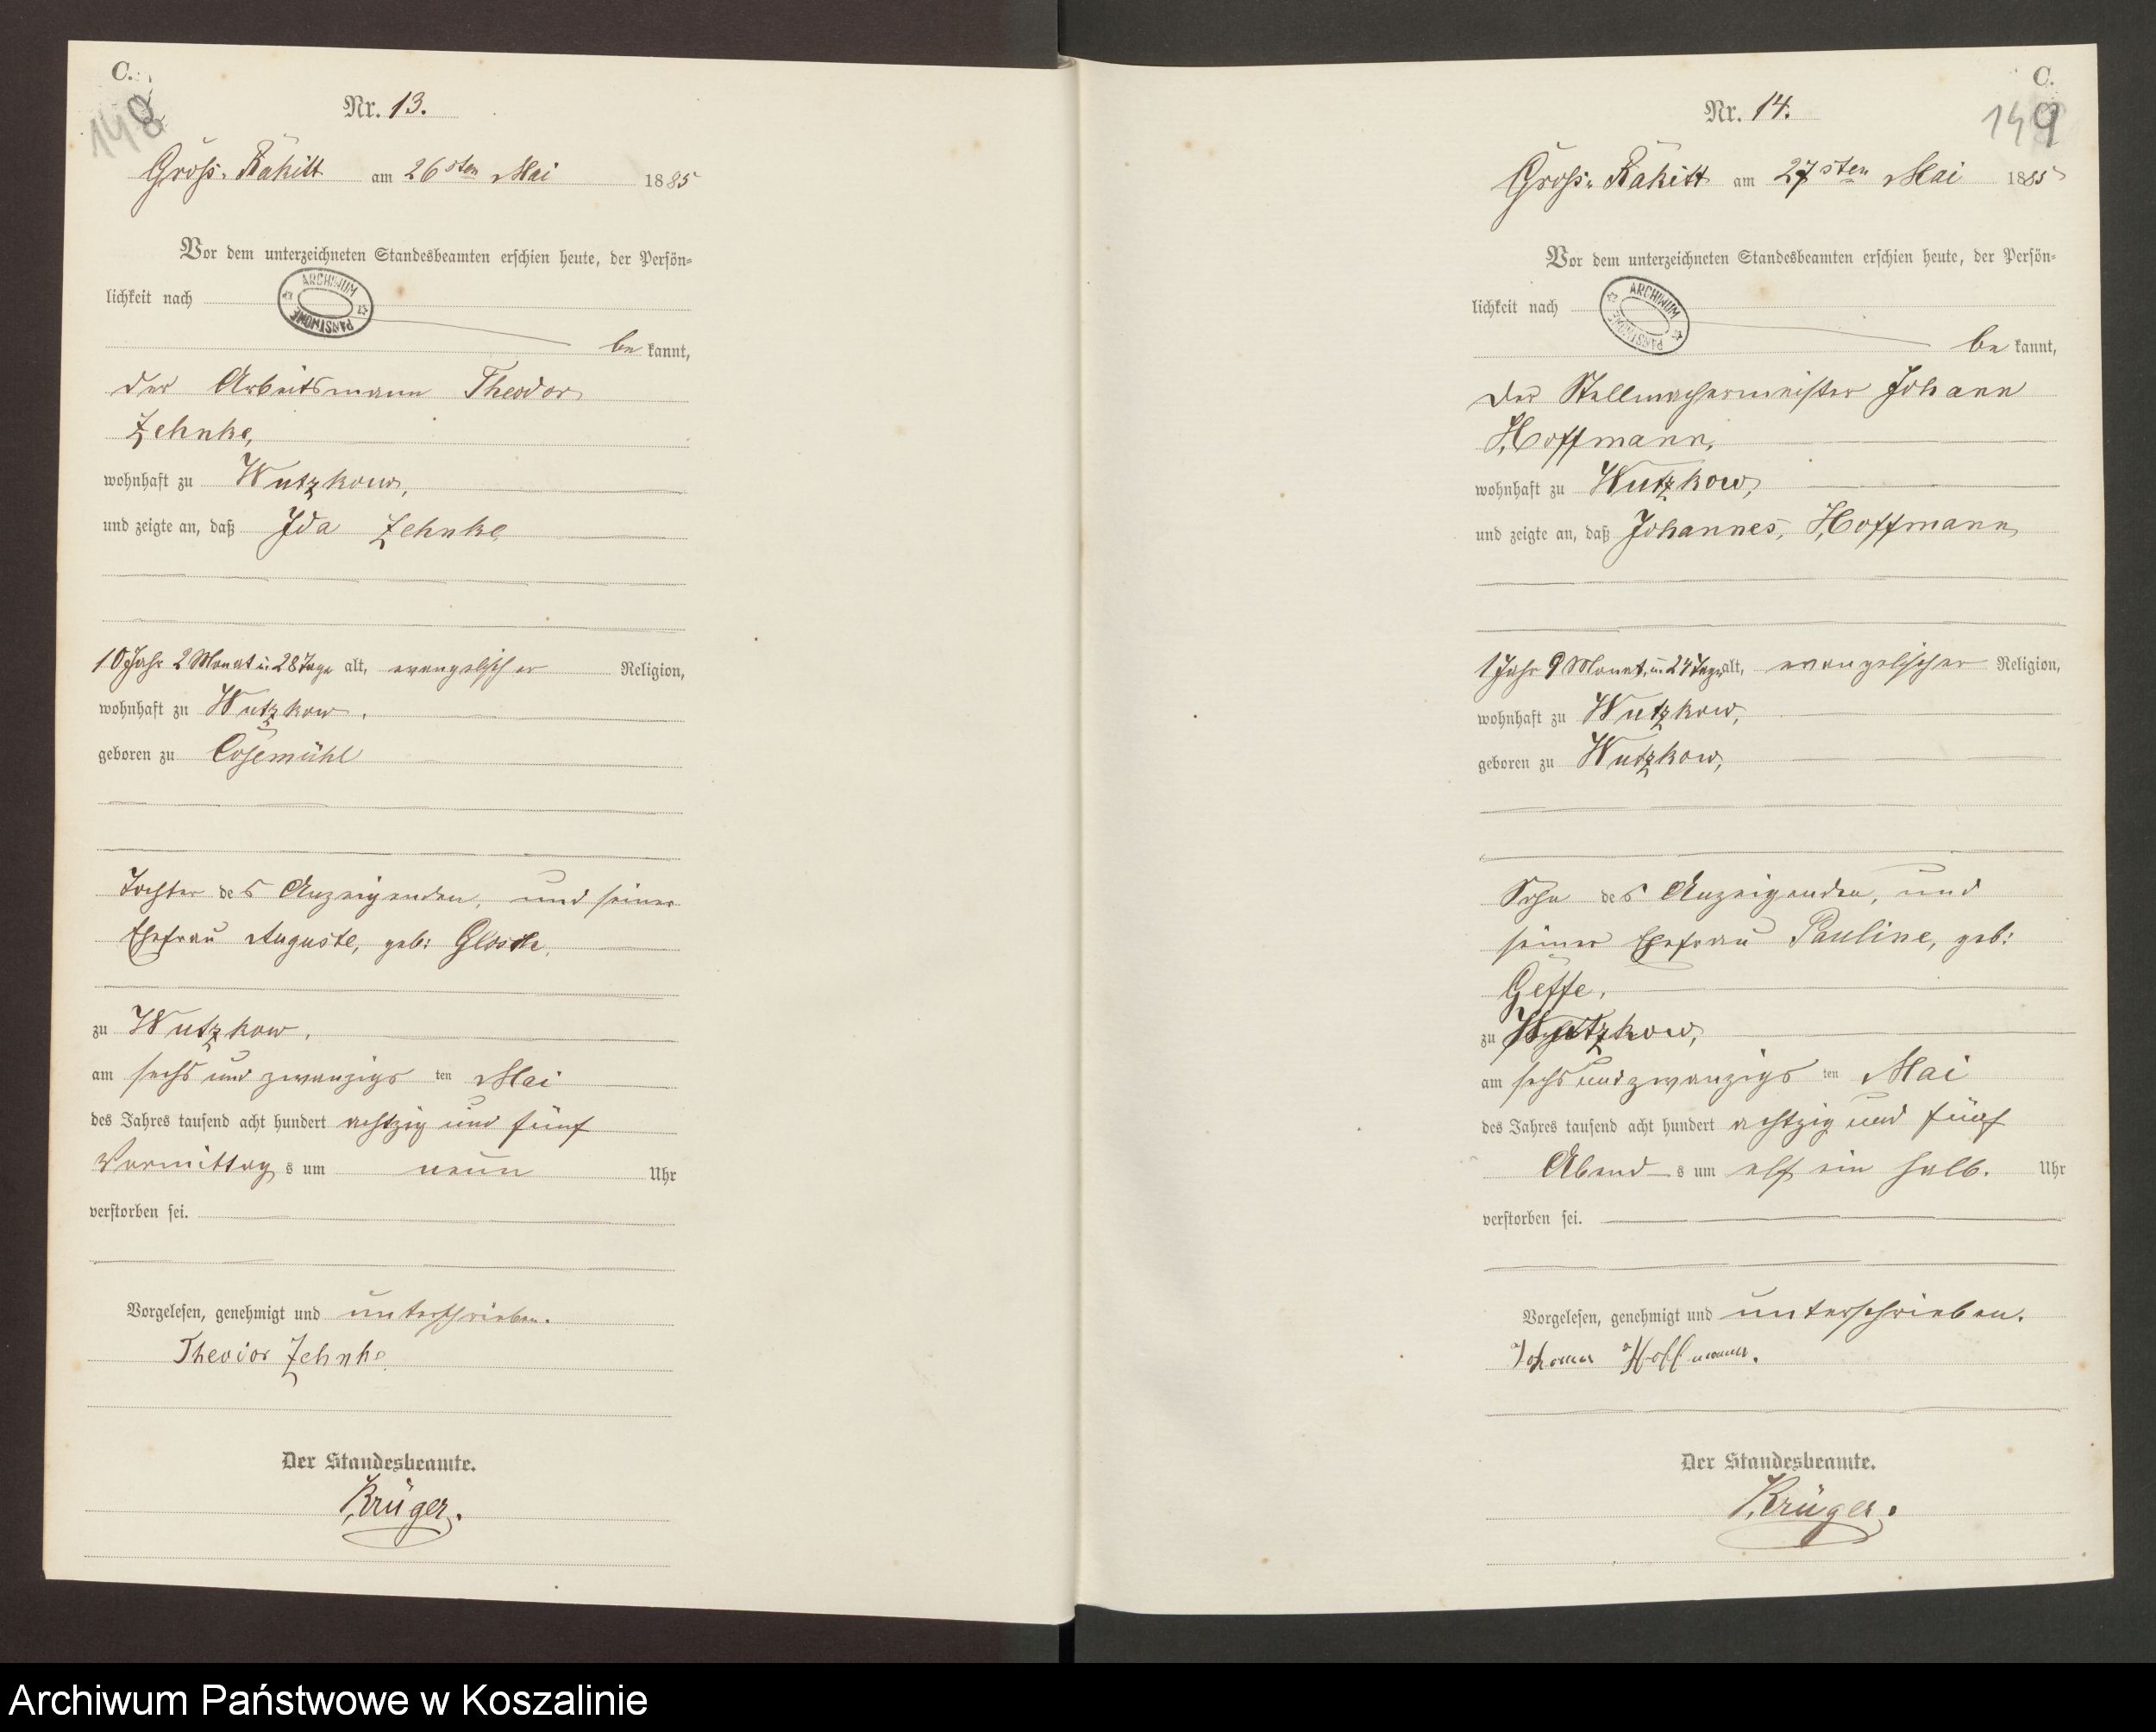 C.
148
Nr. 13.
Gross-Rakitt am 26sten Mai 1885
Vor dem unterzeichneten Standesbeamten erschien heute, der Persön-
lichkeit nach
ARCHIWUM PAŃSTWOWE
be kannt,
der Arbeitsmann Theodor
Zehnke,
wohnhaft zu Wutzkow,
und zeigte an, daß Ida Zehnke
10 Jahr 2 Monat u. 28 Tage alt, evangelischer Religion,
wohnhaft zu Wutzkow,
geboren zu Cosemühl
Tochter des Anzeigenden, und seiner
Ehefrau Auguste, geb:
zu Wutzkow,
am sechs und zwanzigs ten Mai
des Jahres tausend acht hundert achtzig und fünf
Vormittag s um neun Uhr
verstorben sei.
Vorgelesen, genehmigt und unterschrieben.
Theodor Zehnke
Der Standesbeamte.
Krüger.
C.
149
Nr. 14.
Gross-Rakitt am 27sten Mai 1885
Vor dem unterzeichneten Standesbeamten erschien heute, der Persön-
lichkeit nach
ARCHIWUM PAŃSTWOWE
be kannt,
Der Stellmachermeister Johann
Hoffmann,
wohnhaft zu Wutzkow,
und zeigte an, daß Johannes, Hoffmann
1 Jahr 9 Monat, u. 24 Tage alt, evangelischer Religion,
wohnhaft zu Wutzkow,
geboren zu Wutzkow,
Sohn des Anzeigenden, und
seiner Ehefrau Pauline, geb:
Geffe,
zu Wutzkow,
am sechs und zwanzigs ten Mai
des Jahres tausend acht hundert achtzig und fünf
Abend s um elf ein halb. Uhr
verstorben sei.
Vorgelesen, genehmigt und unterschrieben.
Johann Hoffmann.
Der Standesbeamte.
Krüger.
Archiwum Państwowe w Koszalinie